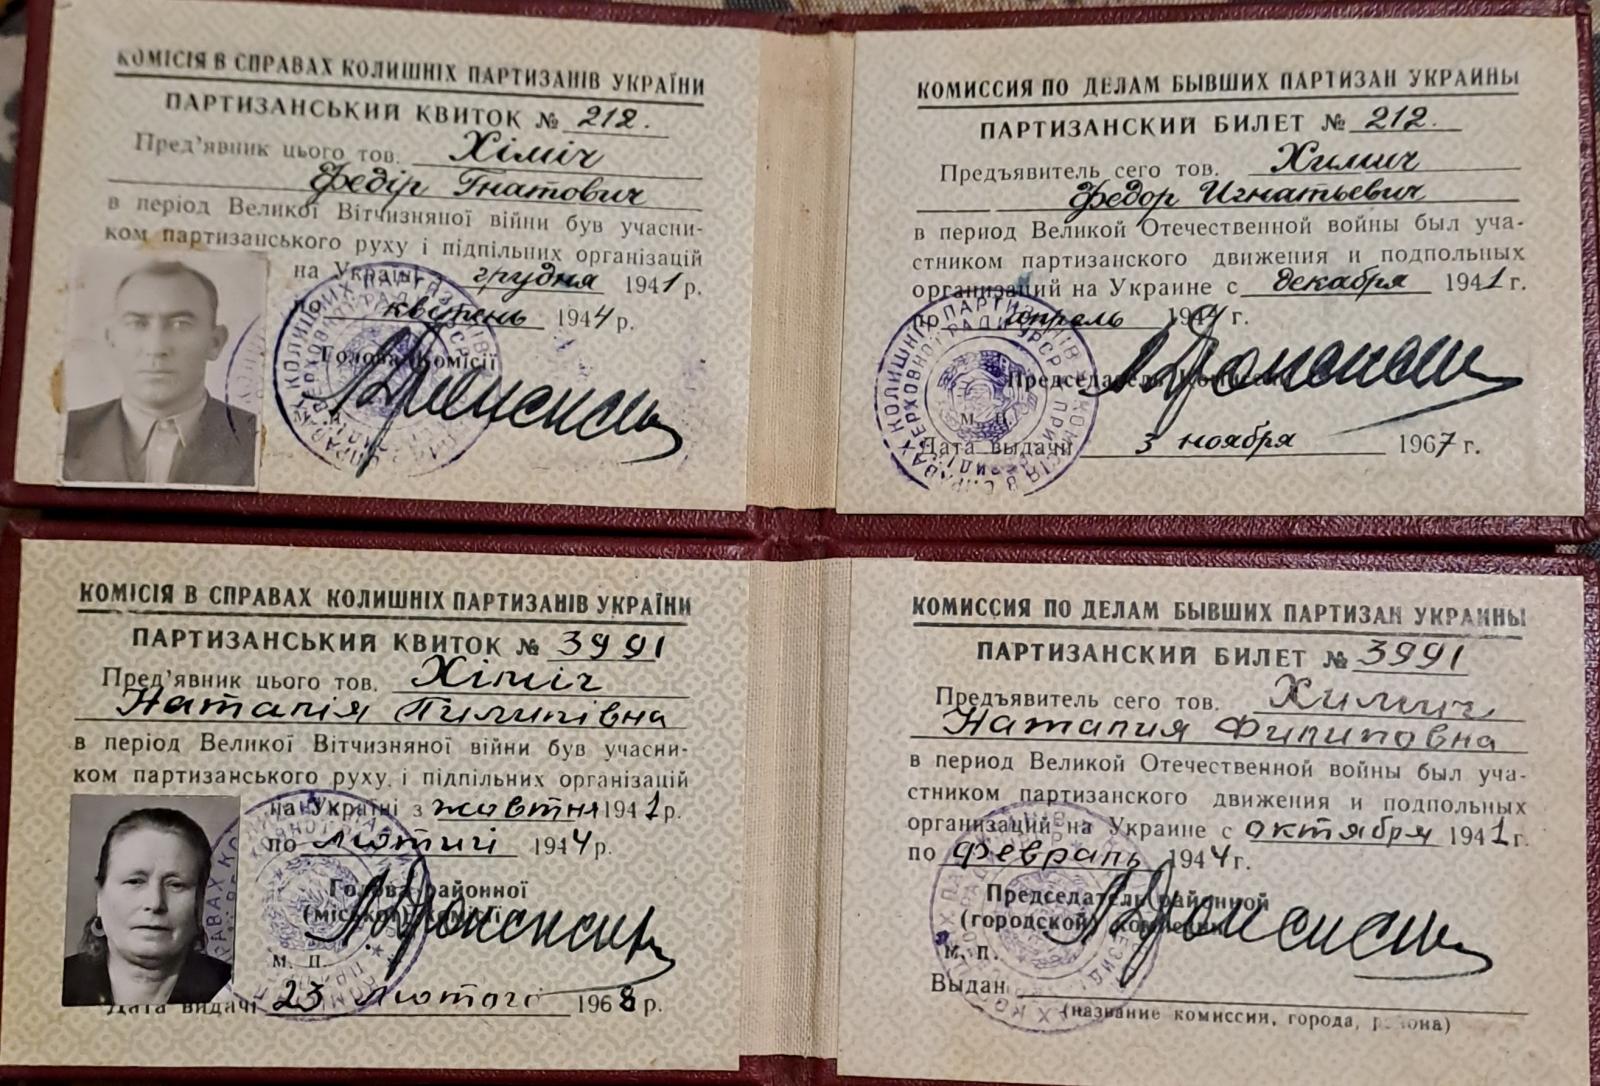 КОМІСІЯ В СПРАВАХ КОЛИШНІХ ПАРТИЗАНІВ УКРАЇНИ
ПАРТИЗАНСЬКИЙ КВИТОК № 212.
Пред'явник цього тов. Хіміч
Федір Гнатович
в період Великої Вітчизняної війни був учасни-
ком партизанського руху і підпільних організацій
на Україні грудня 1941 р.
квітень 1944 р.
Голова Комісії
КОМИССИЯ ПО ДЕЛАМ БЫВШИХ ПАРТИЗАН УКРАИНЫ
ПАРТИЗАНСКИЙ БИЛЕТ № 212.
Предъявитель сего тов. Химич
Федор Игнатьевич
в период Великой Отечественной войны был уча-
стником партизанского движения и подпольных
организаций на Украине с декабря 1941 г.
по апрель 1944 г.
Председатель Комиссии
М. П.
Дата выдачи 3 ноября 1967 г.
КОМІСІЯ В СПРАВАХ КОЛИШНІХ ПАРТИЗАНІВ УКРАЇНИ
ПАРТИЗАНСЬКИЙ КВИТОК № 3991
Пред'явник цього тов. Хіміч
Наталія Пилипівна
в період Великої Вітчизняної війни був учасни-
ком партизанського руху і підпільних організацій
на Україні з жовтня 1941 р.
по лютий 1944 р.
Голова районної
(міської) комісії
М. П.
Дата видачі 23 лютого 1968 р.
КОМИССИЯ ПО ДЕЛАМ БЫВШИХ ПАРТИЗАН УКРАИНЫ
ПАРТИЗАНСКИЙ БИЛЕТ № 3991
Предъявитель сего тов. Химич
Наталия Филиповна
в период Великой Отечественной войны был уча-
стником партизанского движения и подпольных
организаций на Украине с октября 1941 г.
по февраль 1944 г.
Председатель районной
(городской) комиссии
М. П.
Выдан
(название комиссии, города, района)